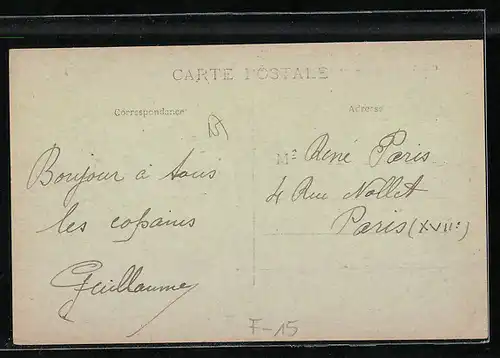 CARTE POSTALE
Correspondance
Adresse
Bonjour à tous
les copains
Guillaume
Mr René Paris
4 Rue Nollet
Paris (XVIIe)
F-15